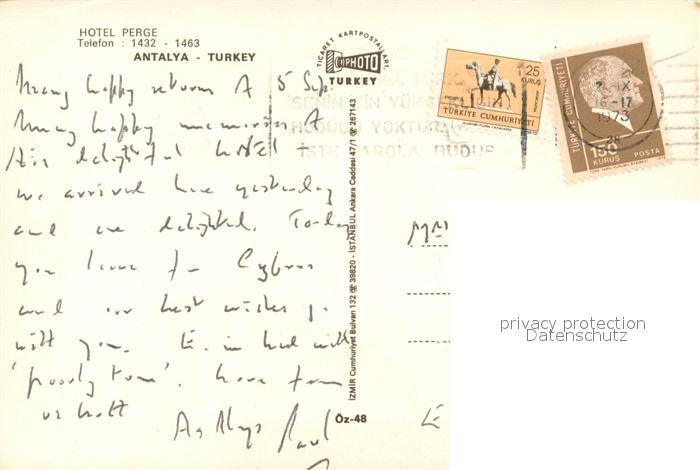 HOTEL PERGE
Telefon : 1432 - 1463
ANTALYA - TURKEY
Many happy returns A 5 Sep.
Many happy memories A
this delightful hotel -
we arrived here yesterday
and are delighted. Today
you leave for Cyprus
and our best wishes go
with you. E. in bed with
'poorly tum'. Love from
us both
As Always Paul
TİCARET KARTPOSTALLARI
KEPHOTO
TURKEY
İZMİR Cumhuriyet Bulvarı 132 ☎ 39820 - İSTANBUL Ankara Caddesi 47/1 ☎ 267143
Öz-48
25
KURUS
TÜRKİYE CUMHURİYETİ
TÜRKİYE CUMHURİYETİ
150
KURUS POSTA
IX
16-17
1973
SENİN İÇİN YÜKS
HUDUDU YOKTUR
İŞTE PAROLA BUDUR
Mr
E
privacy protection
Datenschutz